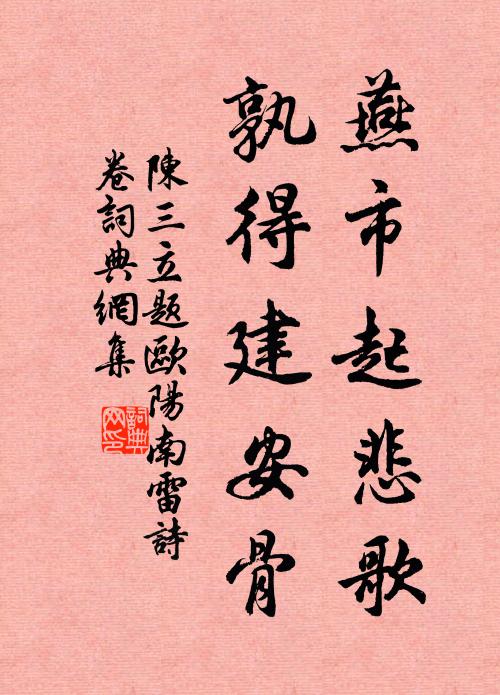 燕市起悲歌
孰得建安骨
陳三立題歐陽南雷詩
卷詞典網集
詞典網印